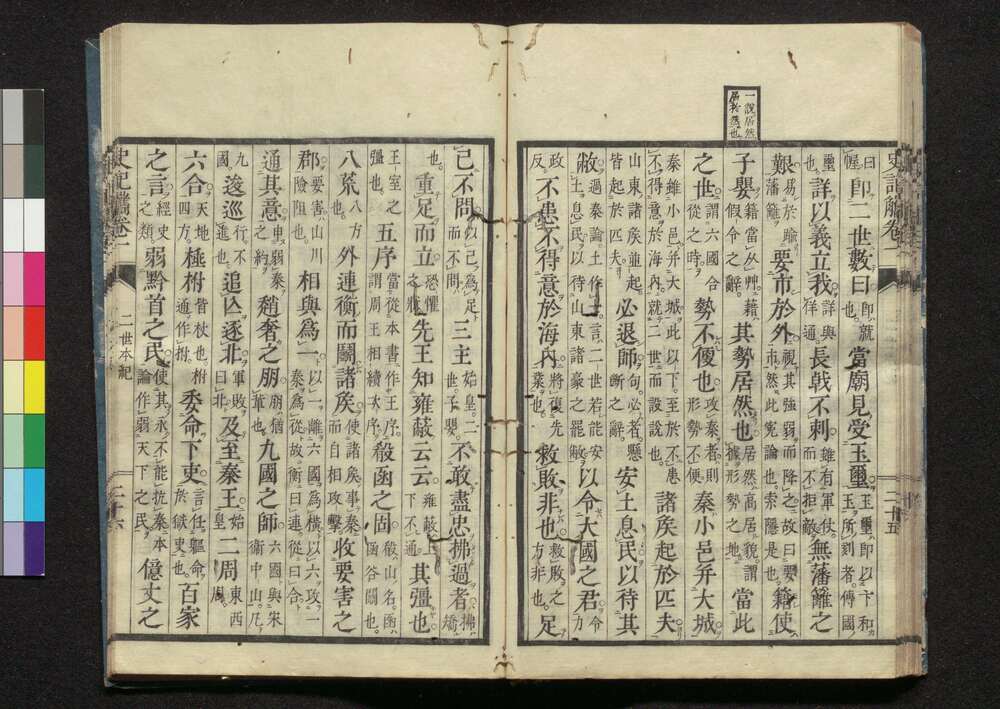 一說居然
居於然也
史記觽卷一
二十五
日幄即二世數曰即就也當廟見受玉璽玉璽即以卞和玉所刻者傳國
璽也詳以義立我詳與佯通長戟不刺雖有軍仗而不拒敵無藩籬之
艱易於踰藩籬要市於外視其強弱而降之故曰要市然此寃論也索隱是也籍使
子嬰籍當从艸藉假令之辭其勢居然也居然高居貌謂據形勢之地當此
之世謂六國合從之時勢不便也攻秦者則形勢不便秦小邑并大城
秦雖小邑并大城此以下至於不患不得意於海內就二世而設說也諸矦起於匹夫
山東諸矦並起皆起於匹夫必退師句必者懸斷之辭安土息民以待其
敝過秦論土作士言二世若能安土息民以待山東諸豪之罷敝以令大國之君令力
政反不患不得意於海內將復先業也救敗非也救敗之方非也足
己不問以己爲足而不問三主始皇二世子嬰不敢盡忠拂過者拂矯
也重足而立恐懼之狀先王知雍蔽云云雍蔽上下不通其彊也
王室之彊也五序當從本書作王序謂周王相續次序殽函之固殽山名函函谷關也
八荒八方外連衡而鬬諸矦使諸矦事秦而自相攻擊收要害之
郡要害山川險阻也相與爲一以一離六國爲橫以六攻一秦爲從故衡曰連從曰合
通其意申弱秦之約趙奢之朋朋猶軰也九國之師六國與宋衛中山凡
九國逡巡遁逃進不行追亾逐北軍敗曰北及至秦王始皇二周東西周
六合天地四方棰柎皆杖也柎通作拊委命下吏言任軀命於獄吏也百家
之言經史之類弱黔首之民使其永不能抗秦本論作弱天下之民億丈之
史記觽卷一
二世本紀
二十六